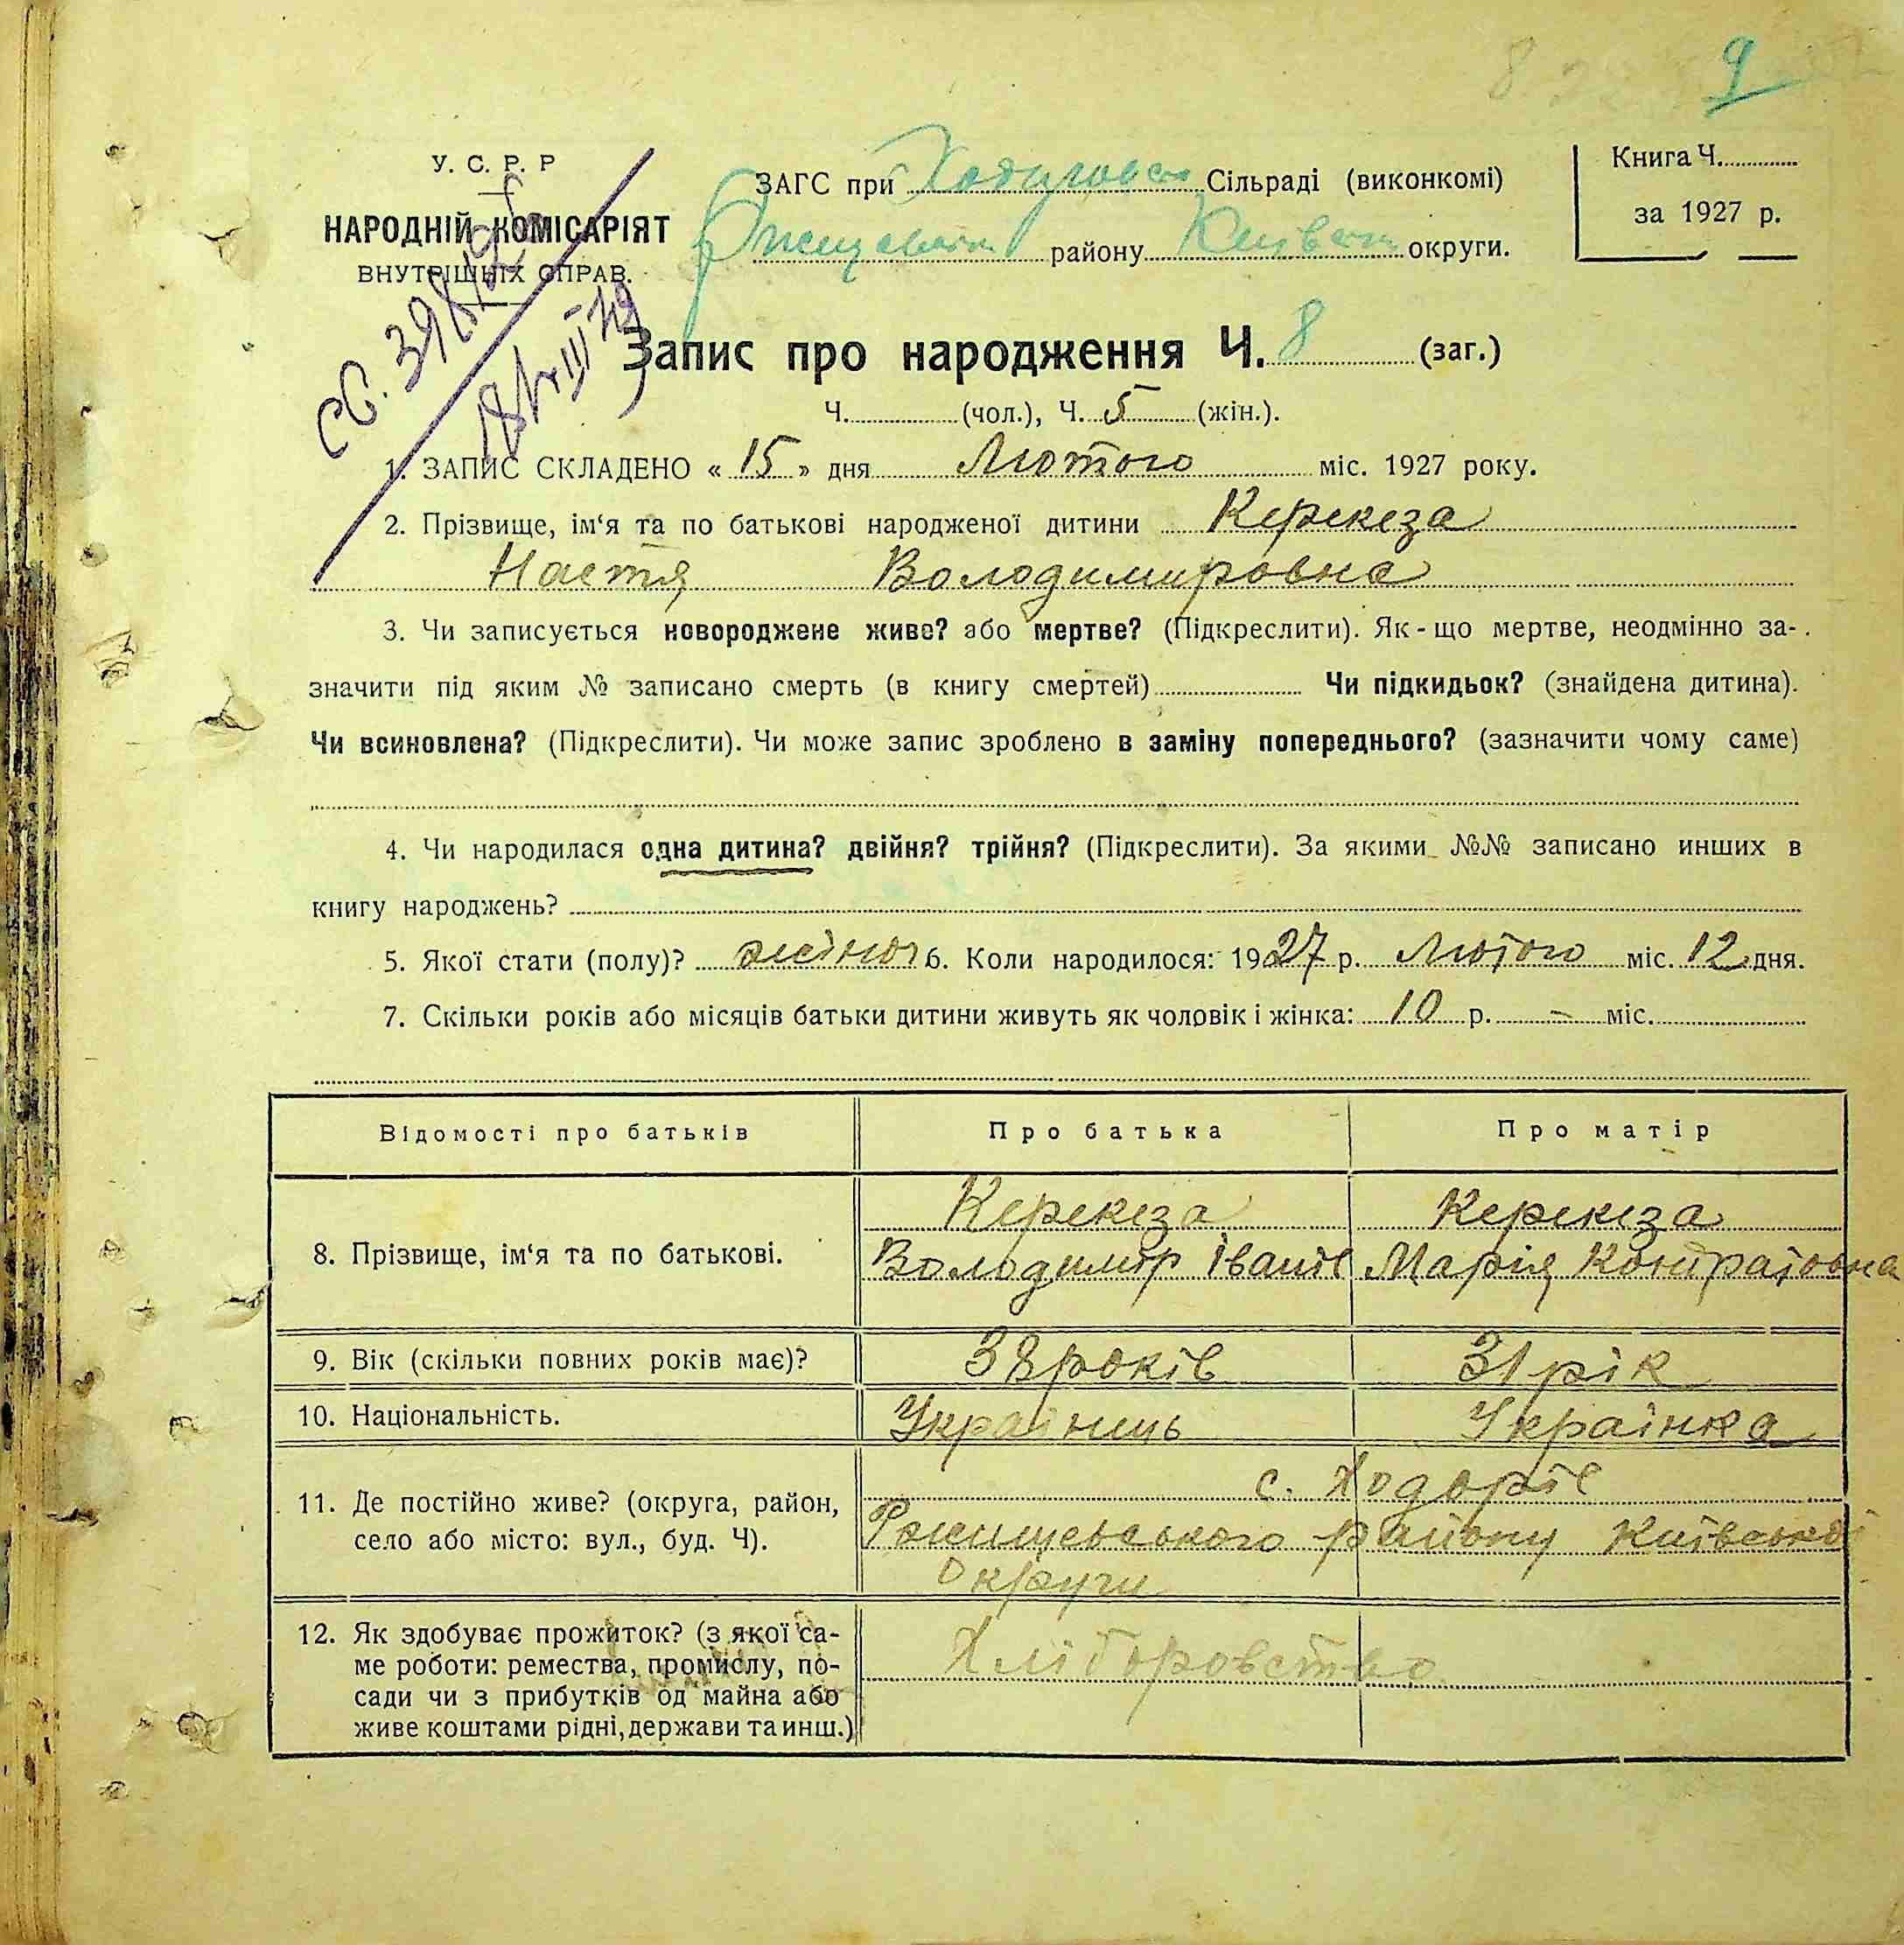 9
У. С. Р. Р
НАРОДНІЙ КОМІСАРІЯТ
ВНУТРІШНІХ СПРАВ.
ЗАГС при Сільраді (виконкомі)
району Київськ округи.
Книга Ч.
за 1927 р.
Запис про народження Ч. 8 (заг.)
Ч. (чол.), Ч. 5 (жін.).
1. ЗАПИС СКЛАДЕНО « 15 » дня Лютого міс. 1927 року.
2. Прізвище, ім‘я та по батькові народженої дитини Керекеза
Настя Володимировна
3. Чи записується новороджене живе? або мертве? (Підкреслити). Як-що мертве, неодмінно за-
значити під яким № записано смерть (в книгу смертей) Чи підкидьок? (знайдена дитина).
Чи всиновлена? (Підкреслити). Чи може запис зроблено в заміну попереднього? (зазначити чому саме)
4. Чи народилася одна дитина? двійня? трійня? (Підкреслити). За якими №№ записано инших в
книгу народжень?
5. Якої стати (полу)? жіночі 6. Коли народилося: 1927 р. Лютого міс. 12 дня.
7. Скільки років або місяців батьки дитини живуть як чоловік і жінка: 10 р. – міс.
Відомості про батьків Про батька Про матір
8. Прізвище, ім‘я та по батькові.
Керекеза
Володимір Іванів
Керекеза
Марія Контратовна
9. Вік (скільки повних років має)? 38 років 31 рік
10. Національність. Українець Українка
11. Де постійно живе? (округа, район,
село або місто: вул., буд. Ч).
с. Ходорів
Ржищевського району Київської
Округи
12. Як здобуває прожиток? (з якої са-
ме роботи: ремества, промислу, по-
сади чи з прибутків од майна або
живе коштами рідні, держави та инш.)
Хліборовство